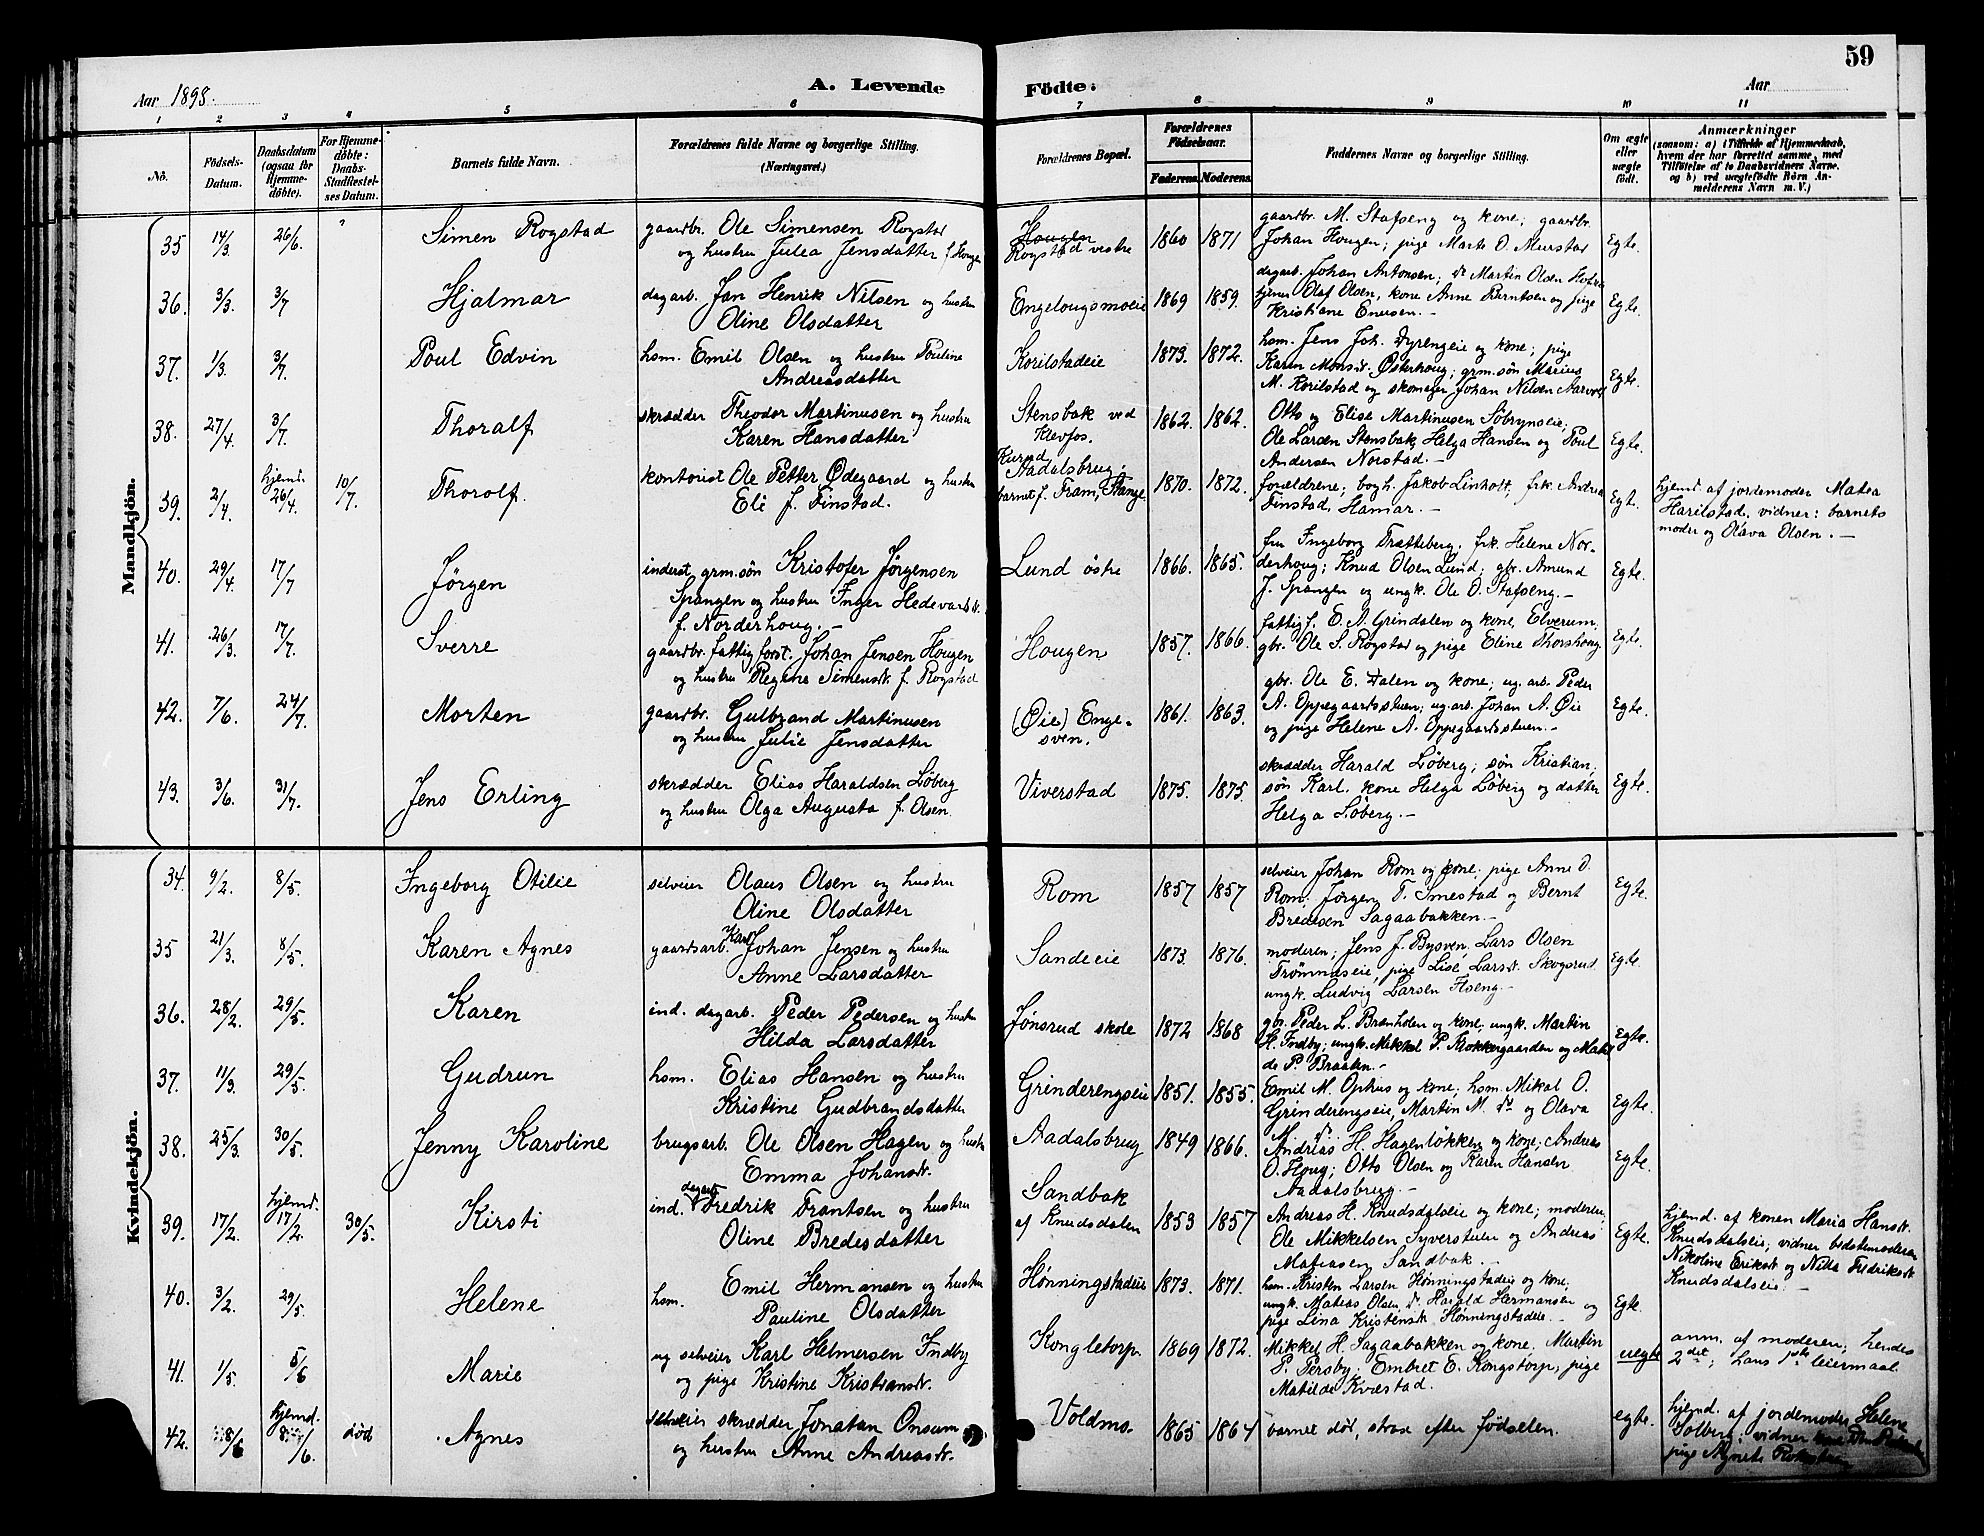 59
Aar 1898.
A. Levende Födte.
Aar
1 2 3 4 5 6 7 8 9 10 11
No.
Födsels-Datum.
Daabsdatum (ogsaa for Hjemme-döbte).
For Hjemme-döbte: Daabs-Stadfæstel-ses Datum.
Barnets fulde Navn.
Forældrenes fulde Navne og borgerlige Stilling. (Næringsvei.)
Forældrenes Bopæl.
Forældrenes Födselsaar.
Faderens. Moderens.
Faddernes Navne og borgerlige Stilling.
Om ægte eller uægte födt.
Anmærkninger
(saasom: a) i Tilfælde af Hjemmedaab,
hvem der har forrettet samme, med
Tilföielse af to Daabsvidners Navne,
og b) ved uægtefödte Börn An-
melderens Navn m. V.)
Mandkjön.
35 14/3. 26/6. Simen Rogstad
gaardbr. Ole Simensen Rogstad
og hustru Julea Jensdatter f. Hougen
Hougen
Rogstad vestre
1860 1871
gaardbr. M. Stafseng og kone; gaardbr.
Johan Hougen; pige Marte O. Murstad
Egte.
36. 3/3. 3/7 Hjalmar
dagarb. Jan Henrik Nilsen og hustru
Oline Olsdatter
Engelougsmoeie 1869 1859.
dagarb. Johan Antonsen; do Martin Olsen
tjener Olaf Olsen, kone Anne Berntsen og pige
Kristiane Enersen.-
Egte.
37. 1/3. 3/7. Poul Edvin
hsm. Emil Olsen og hustru Pouline
Andreasdatter
Korilstadeie 1873. 1872.
hsm. Jens Joh. Dyrengeie og kone; pige
Karen Monsdt. Østerhoug; grm.sön Marius
M. Korilstad og skomager Johan Nilsen
Egte.
38. 27/4. 3/7. Thoralf
skrædder Theodor Martinusen og hustru
Karen Hansdatter
Stensbak ved
Klevfos.
1862. 1862.
Otto og Elise Martinusen Söbryneie;
Ole Larsen Stensbak, Helga Hansen og Poul
Andersen Norstad.-
Egte.
39. 2/4. hjemd. 26/4. 10/7. Thorolf.
kontorist Ole Petter Ødegaard og hustru
Eli f. Finstad.
Kurud
Aadalsbrug;
barnet f. Fram, Stange
1870. 1872.
forældrene; bogh. Jakob Linholt, frk. Andrea
Finstad, Hamar.-
Egte.
hjemd. af jordemoder Matea
Harilstad. vidner: barnets
moder og Olava Olsen.-
40. 29/4. 17/7 Jörgen
inderst, grm.sön Kristofer Jörgensen
Spangen og hustru Inger Hedevardsdt.
f. Norderhoug.-
Lund östre 1866. 1865.
fru Ingeborg Trætteberg, frk. Helene Nor-
derhoug; Knud Olsen Lund; gbr. Amund
J. Spangen og ungk. Ole O. Stafseng.-
Egte.
41. 26/3. 17/7. Sverre
gaardbr. fattigforst. Johan Jensen Hougen
og hustru Regine Simensdt. f. Rogstad
Hougen 1857. 1866.
fattigf. E. A. Grindalen og kone, Elverum.
gbr. Ole S. Rogstad og pige Eline Thorshoug
Egte.
42. 7/6. 24/7. Morten
gaardbr. Gulbrand Martinusen
og hustru Julie Jensdatter
(Øie) Enge-
sven.
1861. 1863.
gbr. Ole E. Dalen og kone; ug. arb. Peder
A. Oppegaardsstuen; ug. arb. Johan A. Øie
og pige Helene A. Oppegaardsstuen.-
Egte.
43. 3/6. 31/7. Jens Erling
skrædder Elias Haraldsen Löberg
og hustru Olga Augusta f. Olsen.
Viverstad 1875. 1875.
skrædder Harald Löberg; sön Kristian,
sön Karl. kone Helga Löberg og datter
Helga Löberg.-
Egte.
Kvindekjön.
34. 9/2. 8/5. Ingeborg Otilie
selveier Olaus Olsen og hustru
Oline Olsdatter
Rom 1857 1857
selveier Johan Rom og kone; pige Anne O.
Rom, Jörgen T. Smestad og Bernt
Bredesen Sagaabakken.-
Egte.
35 21/3. 8/5. Karen Agnes
gaardsarb. Karl Johan Jensen og hustru
Anne Larsdatter
Sandeie 1873. 1876.
moderen; Jens J. Bysven, Lars Olsen
Trömnæseie, pige Lise Larsdt. Skogsrud
ungk. Ludvig Larsen Aseng.-
Egte.
36. 28/2. 29/5. Karen
ind. dagarb. Peder Pedersen og hustru
Hilda Larsdatter
Jönsrud skole 1872 1868
gbr. Peder L. Brænholen og kone, ungk. Martin
H. Indby; ungk. Mikkel P. Klokkergaarden og Matil
de P. Braaten.-
Egte.
37. 11/3. 29/5. Gudrun
hsm. Elias Hansen og hustru
Kristine Gudbrandsdatter
Grinderengseie 1851. 1855.
Emil M. Ophus og kone; hsm. Mikal O.
Grinderengseie, Martin M. do og Olava
M. do
Egte.
38. 25/3. 30/5. Jenny Karoline
brugsarb. Ole Olsen Hagen og hustru
Emma Johansdt.
Aadalsbrug 1849 1866.
Andreas H. Hagenlökken og kone; Andreas
O. Houg; Otto Olsen og Karen Hansen
Aadalsbrug.-
Egte.
39. 17/2. hjemd. 17/2. 30/5. Kirsti
ind. dagarb. Fredrik Frantsen og hustru
Oline Bredesdatter
Sandbak
af Knudsdalen
1853 1857
Andreas H. Knudsdalseie og kone; moderen;
Ole Mikkelsen Syverstuen og Andreas
Matiasen Sandbak.-
Egte.
hjemd. af konen Maria Hansdt.
Knudsdalseie; vidner bedstemoderen
Nikoline Eriksdt. og Nilla Fredriksdt.
Knudsdalseie.-
40. 3/2. 29/5. Helene
hsm. Emil Hermansen og hustru
Pauline Olsdatter
Hönningstadeie 1873. 1871.
hsm. Kristen Larsen Hönningstadeie og kone,
ungk. Matias Olsen, do Harald Hermansen og
pige Lina Kristensdt. Hönningstadeie.-
Egte.
41. 1/5. 5/6 Marie
ug selveier Karl Helmersen Indby
og pige Kristine Kristiansdt.
Kongletorp. 1869 1872.
Mikkel H. Sagaabakken og kone, Martin
P. Persby, Embret E. Kongstorp, pige
Matilde Kvæstad.
uegte
anm. af moderen; hendes
2det; hans 1ste leiermaal.
42. 8/6 hjemd. 8/6. död Agnes
selveier skrædder Jonatan Onsum
og hustru Anne Andreasdt.
Voldmo. 1865 1864
barnet död, strax efter födselen.
egte.
hjemd. af jordemoder Helene
Solberg; vidner
pige Agnete